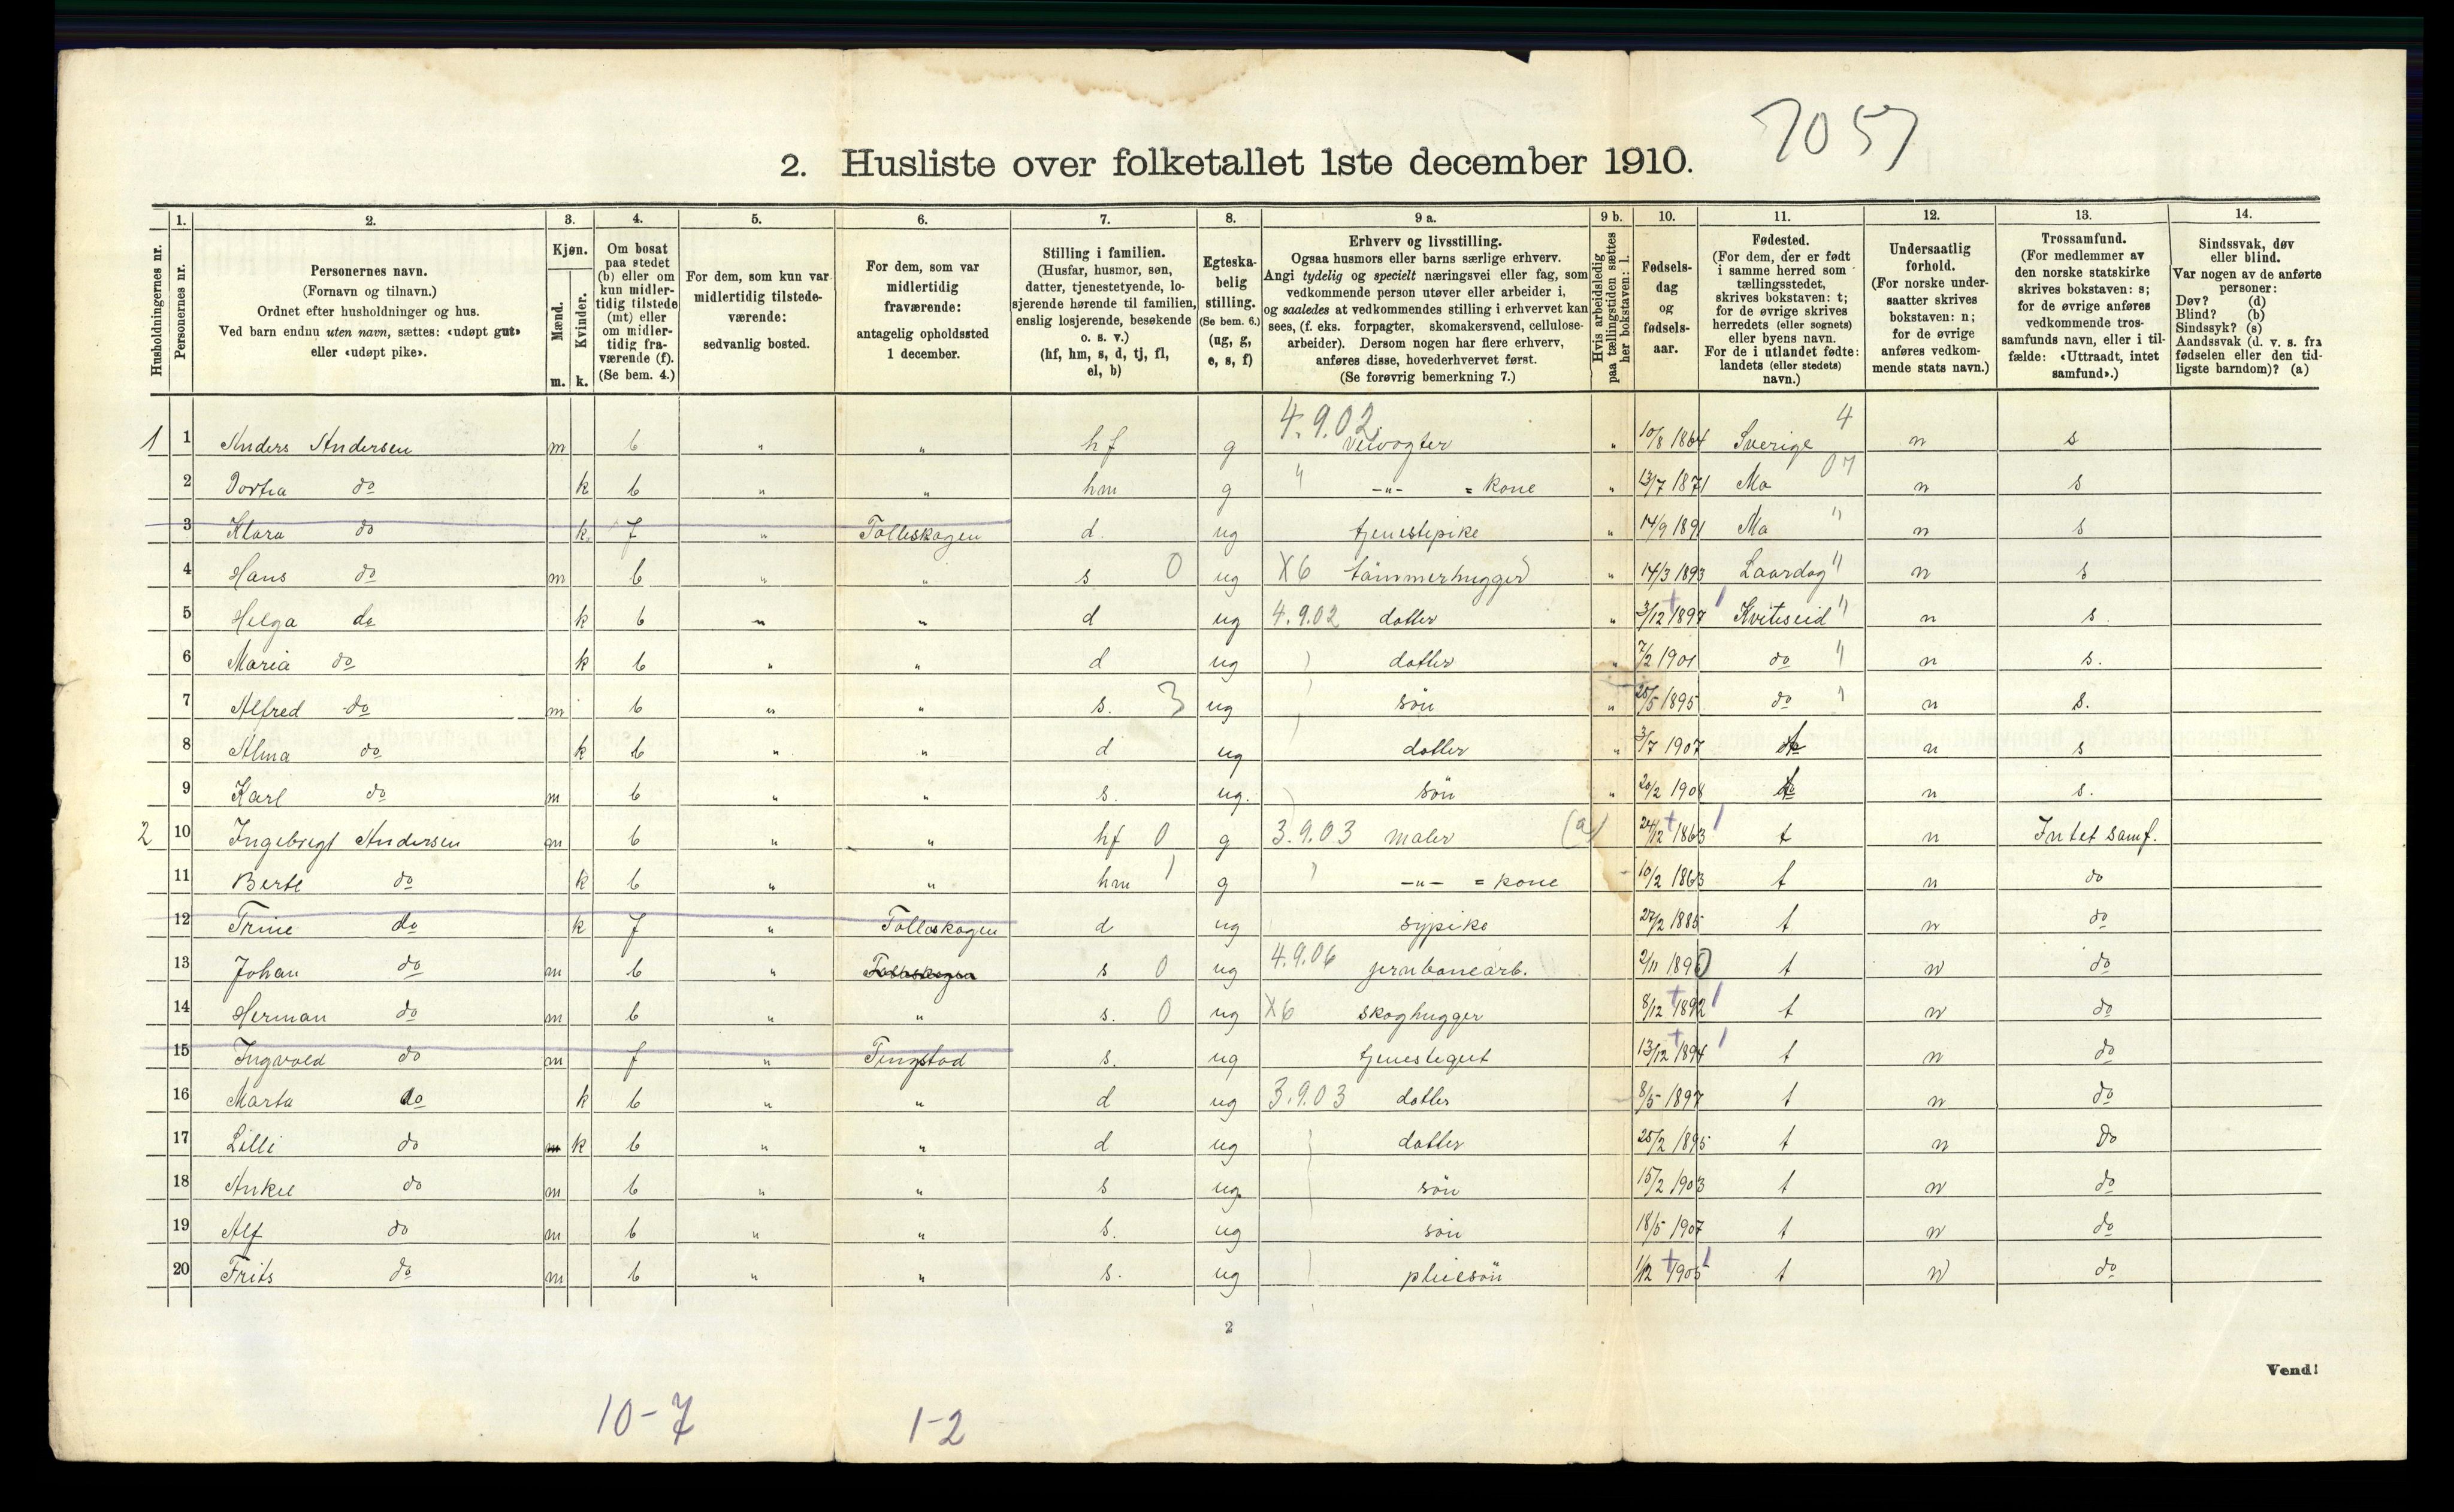 7057
2. Husliste over folketallet 1ste december 1910.
1. 2. 3. 4. 5. 6. 7. 8. 9 a. 9 b. 10. 11. 12. 13. 14.
Husholdningernes nr.
Personernes nr.
Personernes navn.
(Fornavn og tilnavn.)
Ordnet efter husholdninger og hus.
Ved barn endnu uten navn, sættes: «udøpt gut»
eller «udøpt pike».
Kjøn.
Mænd.
Kvinder.
m. k.
Om bosat
paa stedet
(b) eller om
kun midler-
tidig tilstede
(mt) eller
om midler-
tidig fra-
værende (f).
(Se bem. 4.)
For dem, som kun var
midlertidig tilstede-
værende:
sedvanlig bosted.
For dem, som var
midlertidig
fraværende:
antagelig opholdssted
1 december.
Stilling i familien.
(Husfar, husmor, søn,
datter, tjenestetyende, lo-
sjerende hørende til familien,
enslig losjerende, besøkende
o. s. v.)
(hf, hm, s, d, tj, fl,
el, b)
Egteska-
belig
stilling.
(Se bem. 6.)
(ug, g,
e, s, f)
Erhverv og livsstilling.
Ogsaa husmors eller barns særlige erhverv.
Angi tydelig og specielt næringsvei eller fag, som
vedkommende person utøver eller arbeider i,
og saaledes at vedkommendes stilling i erhvervet kan
sees, (f. eks. forpagter, skomakersvend, cellulose-
arbeider). Dersom nogen har flere erhverv,
anføres disse, hovederhvervet først.
(Se forøvrig bemerkning 7.)
Hvis arbeidsledig
paa tællingstiden sættes
her bokstaven: l.
Fødsels-
dag
og
fødsels-
aar.
Fødested.
(For dem, der er født
i samme herred som
tællingsstedet,
skrives bokstaven: t;
for de øvrige skrives
herredets (eller sognets)
eller byens navn.
For de i utlandet fødte:
landets (eller stedets)
navn.)
Undersaatlig
forhold.
(For norske under-
saatter skrives
bokstaven: n;
for de øvrige
anføres vedkom-
mende stats navn.)
Trossamfund.
(For medlemmer av
den norske statskirke
skrives bokstaven: s;
for de øvrige anføres
vedkommende tros-
samfunds navn, eller i til-
fælde: «Uttraadt, intet
samfund».)
Sindssvak, døv
eller blind.
Var nogen av de anførte
personer:
Døv? (d)
Blind? (b)
Sindssyk? (s)
Aandssvak (d. v. s. fra
fødselen eller den tid-
ligste barndom)? (a)
4.9.02. 4
1 1 Anders Andersen m b " " hf g Veivogter " 10/8 1864 Sverige n s
2 do k b " " hm g " -"- = kone " 13/7 1871 Mo 07 n s
3 Klara do k f " Tolleskogen d. ug tjenestepike " 14/9 1891 Mo " n s
4 Hans do m b " " s 0 ug X6 tømmerhugger " 14/3 1893 Laardag " n s
5 Helga do k b " " d ug 4.9.02 datter " 3/12 1897 Kviteseid " n s.
6 Maria do k b " " d ug datter " 7/2 1901 do " n s.
7 Alfred do m b " " s. 3 ug søn " 25/5 1895 do n s.
8 Alma do k b " " d ug datter " 3/7 1907 n s
9 Karl do m b " " s. ug. søn " 20/2 1908 n s.
2 10 Ingebregt Andersen m b " " hf 0 g 3.9.03 maler (a) 24/12 1863 t n Intet samf.
11 Berte do k b " " hm 1 g -"- = kone 10/2 1863 t n do
12 Trine do k f " Tolleskogen d ug sypike 27/2 1885 t n do
13 Johan do m b " Tolleskogen s 0 ug 4.9.06 jernbanearb. 2/11 1890 t n do
14 Herman do m b " " s. 0 ug X6 skoghugger 8/12 1892 t n do
15 Ingvald do m f " Tingstad s. ug tjenestegut 13/12 1894 t n do
16 Marta do k b " " d ug 3.9.03 datter 8/5 1897 t n do
17 Lilli do m k b " " d ug datter 25/2 1895 t n Do
18 Ankel do m b " " s ug. søn 15/2 1903 t n do
19 Alf do m b " " s. ug søn 18/5 1907 t n do
20 Frits do m b " " s. ug pleiesøn 1/12 1905 t n do
2
Vend!
10-7 1-2